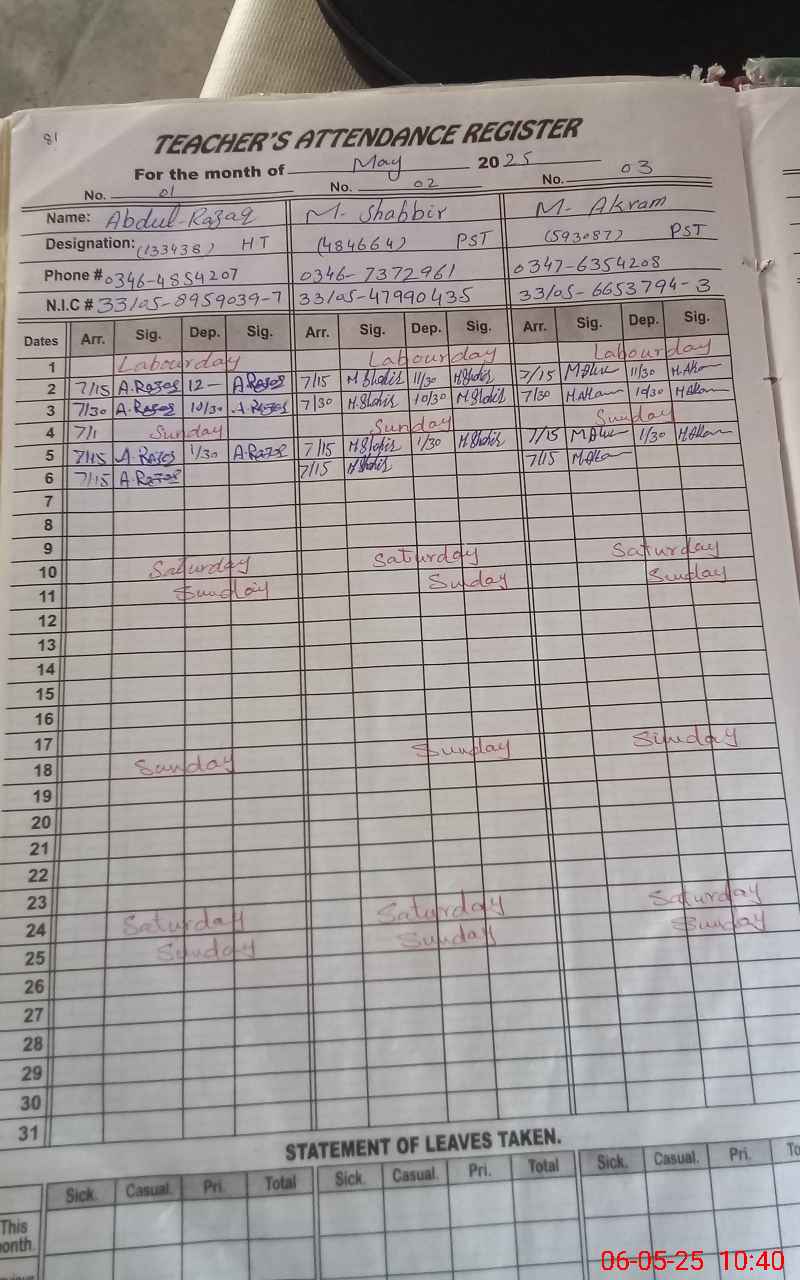 81
TEACHER'S ATTENDANCE REGISTER
For the month of May 2025
No. 01 No. 02 No. 03
Name: Abdul-Razaq M- Shabbir M- Akram
Designation: (133438) HT (484664) PST (593087) PST
Phone # 0346-4854207 0346-7372961 0347-6354208
N.I.C # 33105-8959039-7 33105-47990435 33105-6653794-3
Dates Arr. Sig. Dep. Sig. Arr. Sig. Dep. Sig. Arr. Sig. Dep. Sig.
1 Labourday Labourday Labourday
2 7/15 A.Razaq 12- A.Razaq 7/15 M.Shabir 11/30 M.Shabir 7/15 11/30
3 7/30 A.Razaq 10/30 A.Razaq 7/30 M.Shabir 10/30 M.Shabir 7/30 M.Akram 10/30 M.Akram
4 7/1 Sunday Sunday Sunday
5 7/15 A.Razaq 1/30 A.Razaq 7/15 M.Shabir 1/30 M.Shabir 7/15 1/30 M.Akram
6 7/15 A.Razaq 7/15 M.Shabir 7/15 M.Akram
7
8
9
10 Saturday Saturday Saturday
11 Sunday Sunday Sunday
12
13
14
15
16
17
18 Sunday Sunday Sunday
19
20
21
22
23
24 Saturday Saturday Saturday
25 Sunday Sunday Sunday
26
27
28
29
30
31
STATEMENT OF LEAVES TAKEN.
Sick. Casual. Pri. Total Sick. Casual. Pri. Total Sick. Casual. Pri. To
This
onth.
06-05-25 10:40